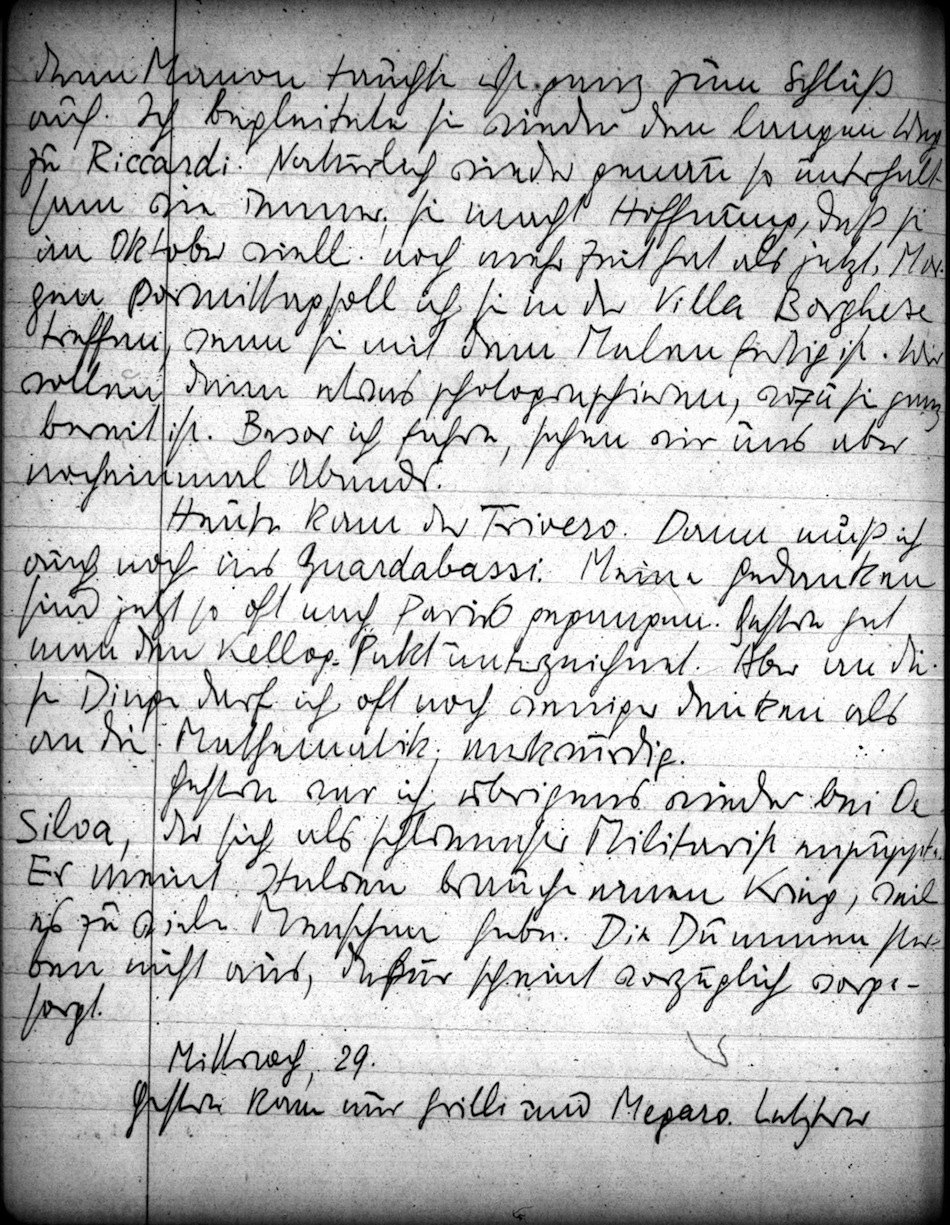 denn Manon tauchte erst ganz zum Schluß
auf. Ich begleitete sie wieder den langen Weg
zu Riccardi. Natürlich wieder genau so unterhalt-
sam wie immer, sie macht Hoffnung, daß sie
im Oktober viell. noch mehr Zeit hat als jetzt. Mor-
gen Vormittag soll ich sie in der Villa Borghese
treffen, wenn sie mit dem Malen fertig ist. Wir
wollen dann etwas photographieren, wozu sie ganz
bereit ist. Bevor ich fahre, sehen wir uns aber
nocheinmal Abends.
Heute kam der Trivero. Dann muß ich
auch noch ins Guardabassi. Meine Gedanken
sind jetzt so oft nach Paris gegangen. Gestern hat
man den Kellog-Pakt unterzeichnet. Aber an die-
se Dinge darf ich oft noch weniger denken als
an die Mathematik, merkwürdig.
Gestern war ich übrigens wieder bei De
Silva, der sich als schlimmster Militarist entpuppte.
Er meint Italien brauche einen Krieg, weil
es zu viele Menschen habe. Die Dummen ster-
ben nicht aus, dafür scheint vorzüglich vorge-
sorgt.
Mittwoch, 29.
Gestern kam nur Grilli und Megaro. Letzterer